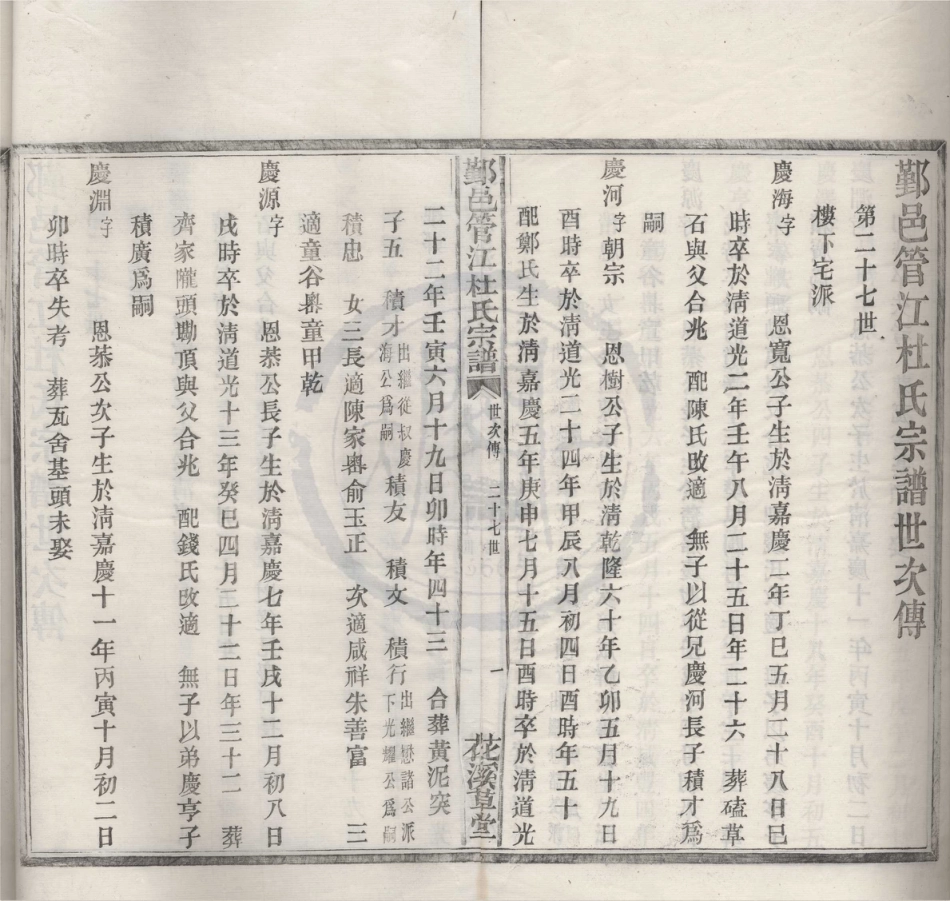 鄞邑管江杜氏宗譜世次傳
第二十七世
樓下宅派
慶海字 恩寬公子生於清嘉慶二年丁巳五月二十八日巳
時卒於清道光二年壬午八月二十五日年二十六 葬磕草
石與父合兆 配陳氏改適 無子以從兄慶河長子積才爲
嗣
慶河字朝宗 恩樹公子生於清乾隆六十年乙卯五月十九日
酉時卒於清道光二十四年甲辰八月初四日酉時年五十
配鄭氏生於清嘉慶五年庚申七月十五日酉時卒於清道光
鄞邑管江杜氏宗譜 世次傳 二十七世 一 花溪草堂
二十二年壬寅六月十九日卯時年四十三 合葬黃泥突
子五 積才出繼從叔慶海公爲嗣 積友 積文 積行出繼懋諸公派下光耀公爲嗣
積忠 女三長適陳家㠘俞玉正 次適咸祥朱善富 三
適童谷㠘童甲乾
慶源字 恩恭公長子生於清嘉慶七年壬戌十二月初八日
戌時卒於清道光十三年癸巳四月二十二日年三十二 葬
齊家隴頭墈頂與父合兆 配錢氏改適 無子以弟慶亨子
積廣爲嗣
慶淵字 恩恭公次子生於清嘉慶十一年丙寅十月初二日
卯時卒失考 葬瓦舍基頭未娶